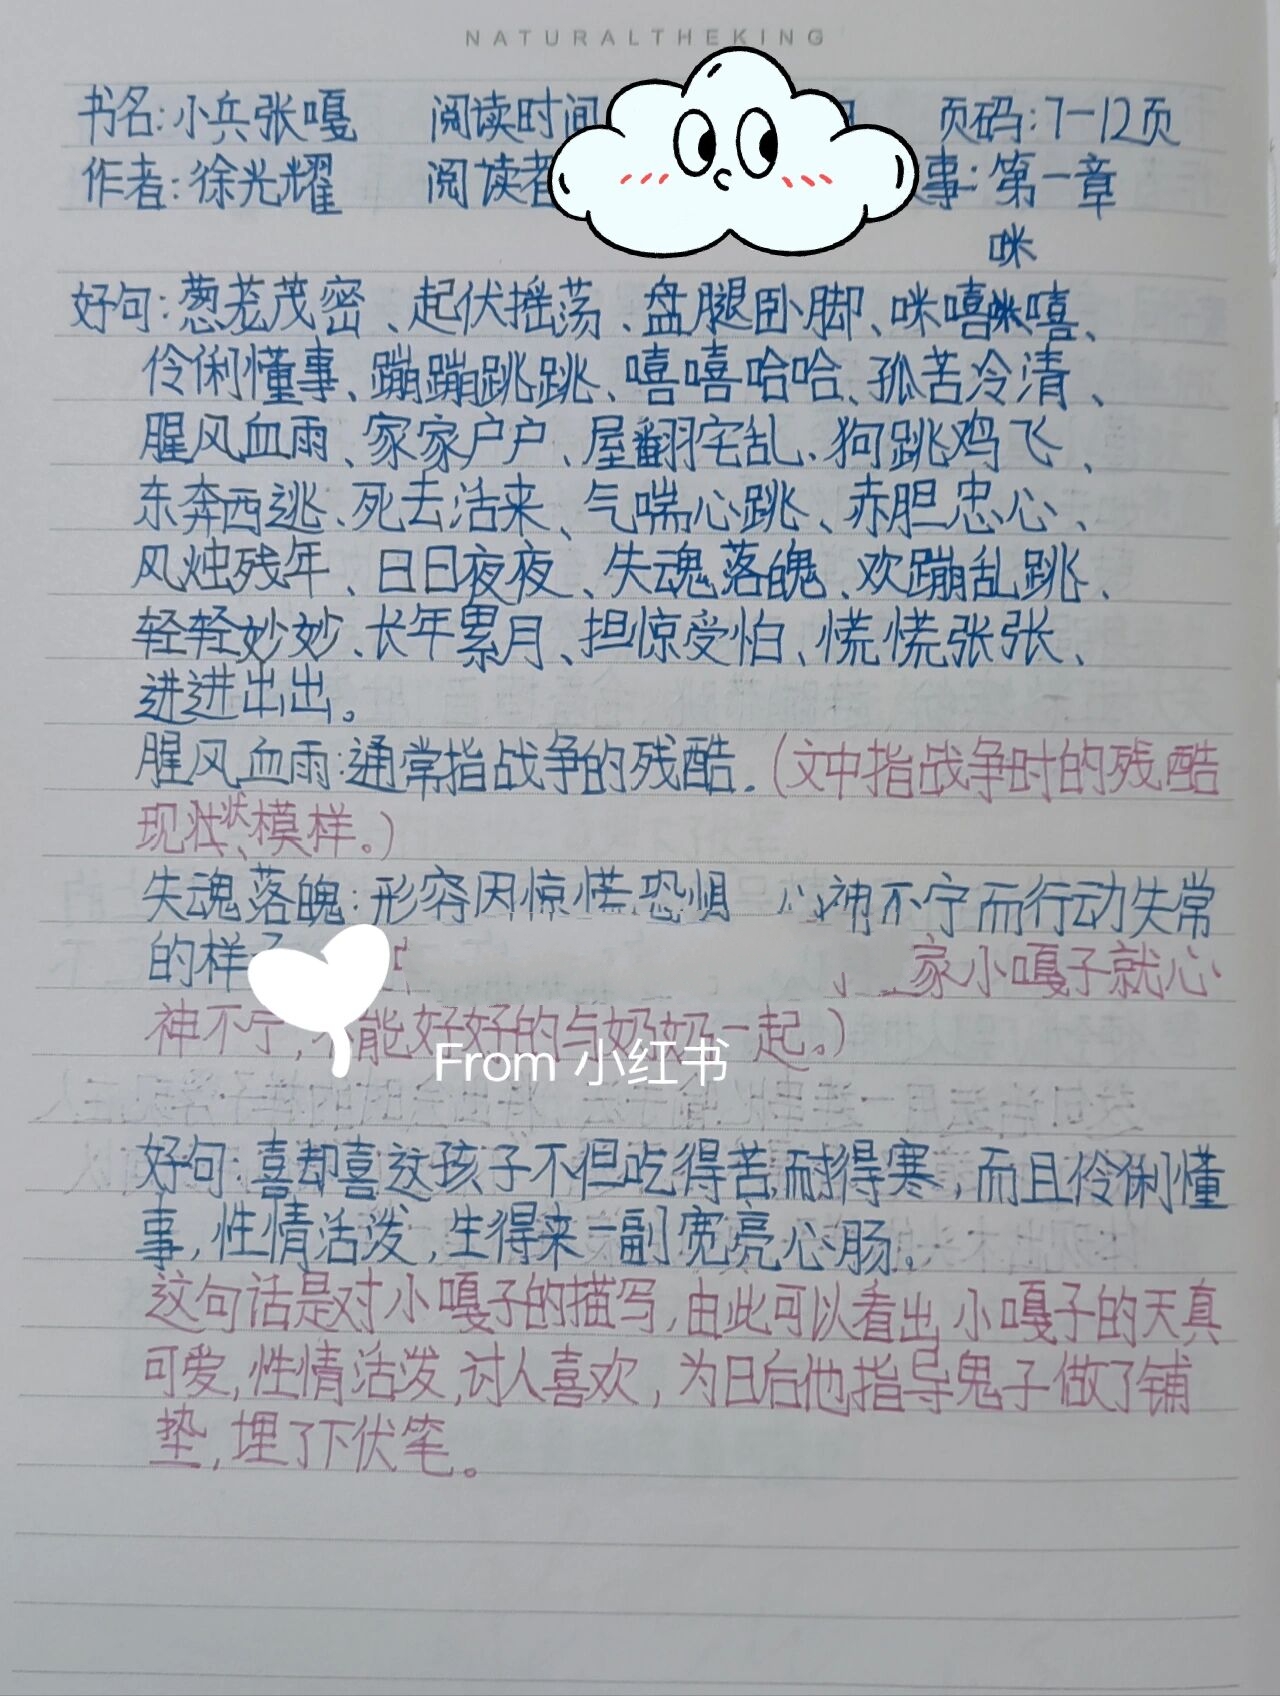 NATURALTHEKING
书名:小兵张嘎 阅读时间 页码:7-12页
作者:徐光耀 阅读者 事:第一章
咪
好句:葱茏茂密、起伏摇荡、盘腿卧脚、咪嘻咪嘻、
伶俐懂事、蹦蹦跳跳、嘻嘻哈哈、孤苦冷清、
腥风血雨、家家户户、屋翻宅乱、狗跳鸡飞、
东奔西逃、死去活来、气喘心跳、赤胆忠心、
风烛残年、日日夜夜、失魂落魄、欢蹦乱跳、
轻轻妙妙、长年累月、担惊受怕、慌慌张张、
进进出出。
腥风血雨:通常指战争的残酷。(文中指战争时的残酷
现状、模样。)
失魂落魄:形容因惊慌恐惧 心神不宁而行动失常
的样 家小嘎子就心
神不宁,不能好好的与奶奶一起。)
From 小红书
好句:喜却喜这孩子不但吃得苦,耐得寒,而且伶俐懂
事,性情活泼,生得来一副宽亮心肠。
这句话是对小嘎子的描写,由此可以看出小嘎子的天真
可爱,性情活泼,讨人喜欢,为日后他指导鬼子做了铺
垫,埋了下伏笔。